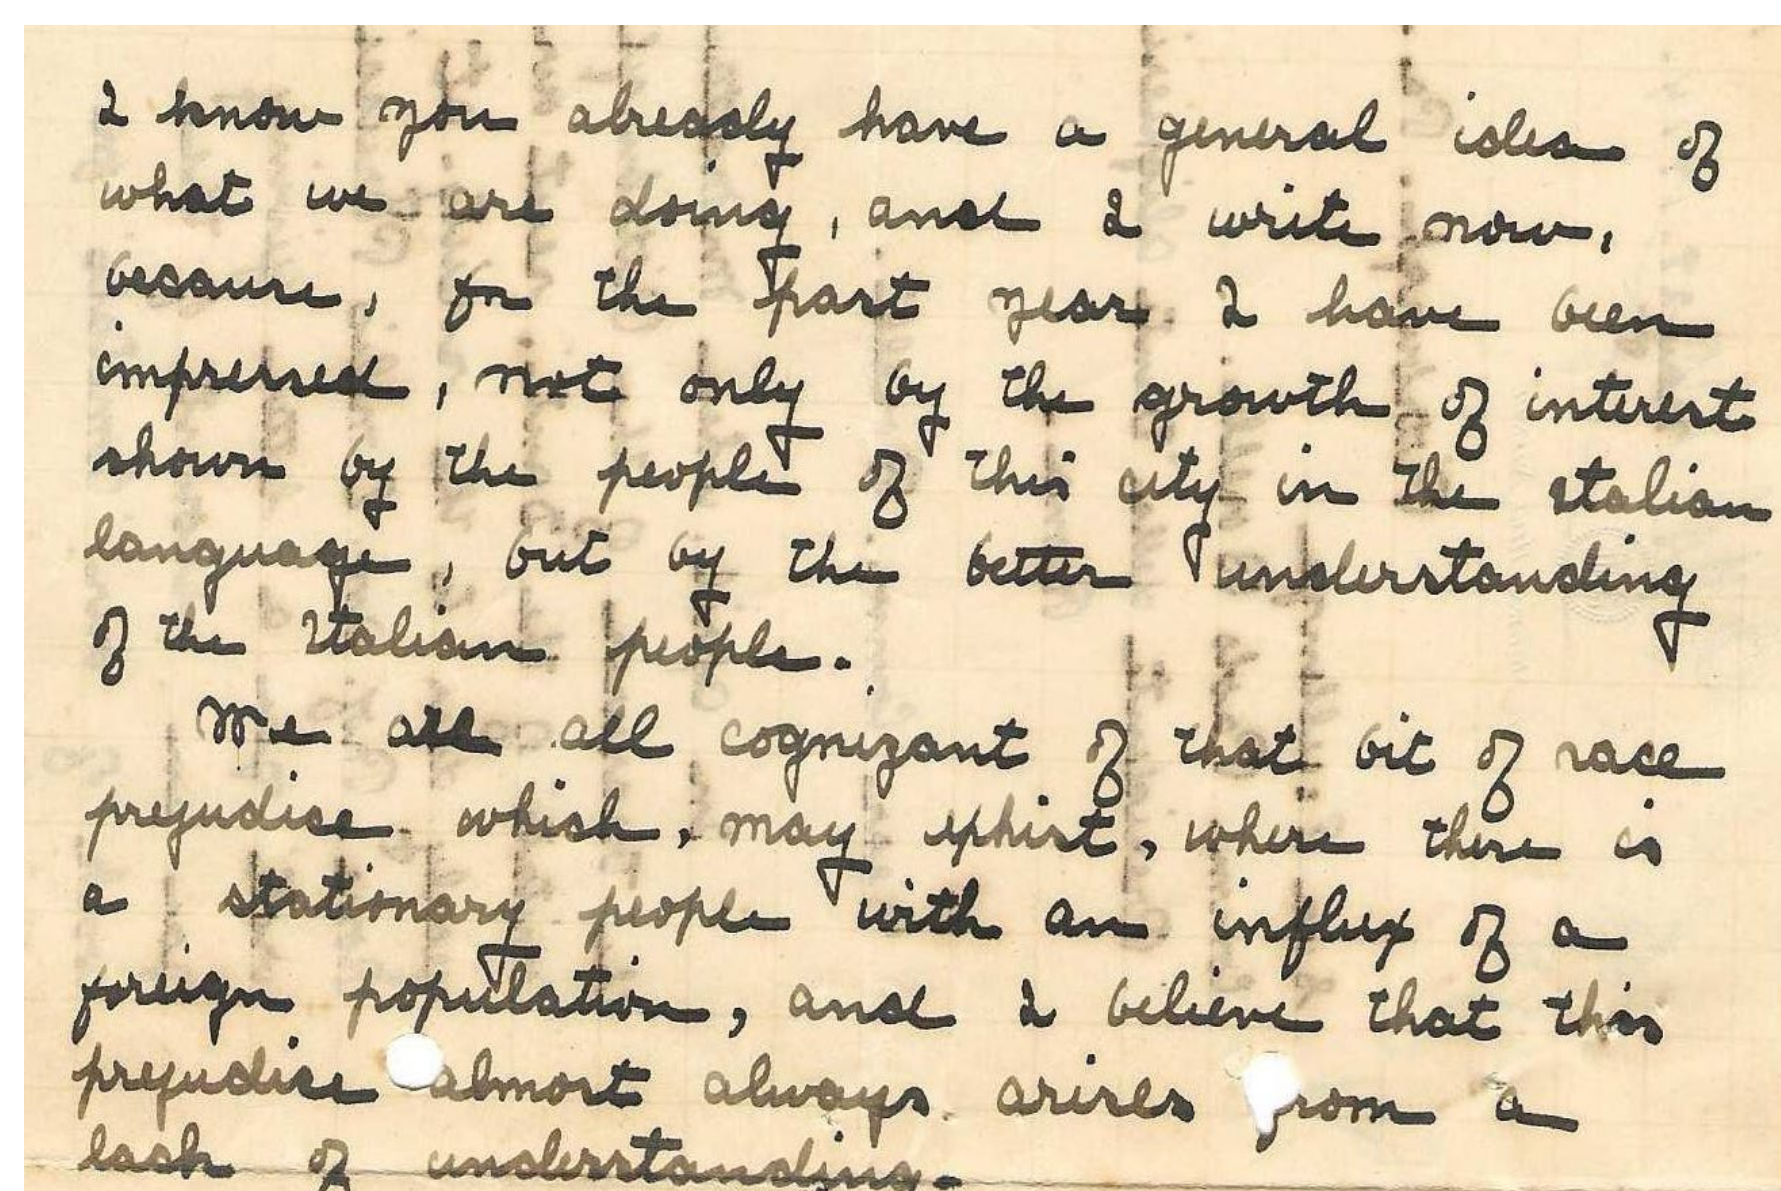 I know you already have a general idea of
what we are doing, and I write now,
because, for the past year I have been
impressed, not only by the growth of interest
shown by the people of this city in the Italian
language, but by the better understanding
of the Italian people.
We are all cognizant of that bit of race
prejudice which, may exhist, where there is
a stationary people with an influx of a
foreign population, and I believe that this
prejudice almost always arises from a
lack of understanding.